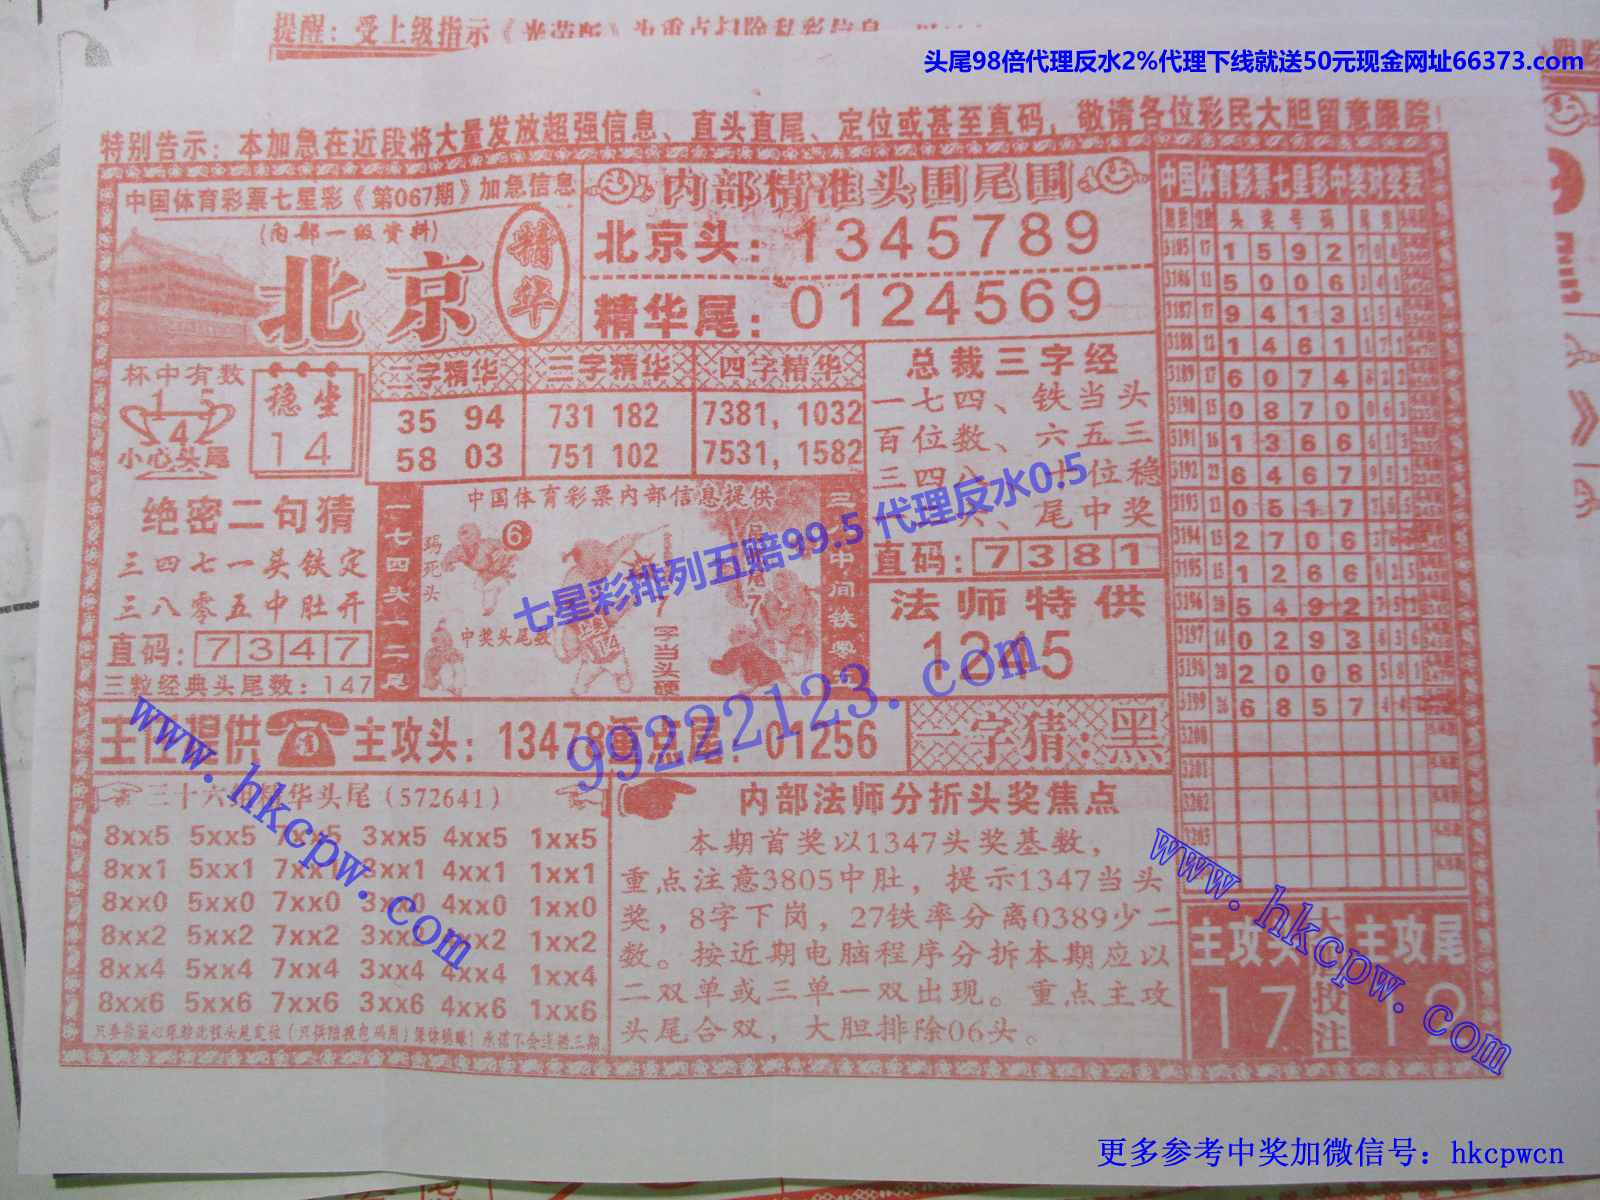 提醒：受上级指示《
头尾98倍代理反水2%代理下线就送50元现金网址66373.com
特别告示：本加急在近段将大量发放超强信息、直头直尾、定位或甚至直码，敬请各位彩民大胆留意跟踪！
中国体育彩票七星彩《第067期》加急信息
(内部一级资料)
北京
精华
内部精准头围尾围
北京头：1345789
精华尾：0124569
杯中有数
1 5
4
小心头尾
稳坐
14
二字精华
35 94
58 03
三字精华
731 182
751 102
四字精华
7381, 1032
7531, 1582
总裁三字经
一七四、铁当头
百位数、六五三
三四八、
位稳
尾中奖
直码：7381
绝密二句猜
三四七一头铁定
三八零五中肚开
直码：7347
三粒经典头尾数：147
一七四头一二尾
中国体育彩票内部信息提供
6
中奖头尾数
14
7
字当头硬
7
中间铁
法师特供
1245
七星彩排列五赔99.5 代理反水0.5
99222123.com
主任提供
主攻头：13478
重点尾：01256
一字猜：黑
www.hkcpw.com
三十六
华头尾(572641)
8xx5 5xx5 7xx5 3xx5 4xx5 1xx5
8xx1 5xx1 7xx1 3xx1 4xx1 1xx1
8xx0 5xx0 7xx0 3xx0 4xx0 1xx0
8xx2 5xx2 7xx2 3xx2 4xx2 1xx2
8xx4 5xx4 7xx4 3xx4 4xx4 1xx4
8xx6 5xx6 7xx6 3xx6 4xx6 1xx6
内部法师分折头奖焦点
本期首奖以1347头奖基数，
重点注意3805中肚，提示1347当头
奖，8字下岗，27铁率分离0389少二
数。按近期电脑程序分拆本期应以
二双单或三单一双出现。重点主攻
头尾合双，大胆排除06头。
中国体育彩票七星彩中奖对奖表
头奖号码
3185 17 1592
3186 11 5006
3187 17 9413
3188 12 1461
3189 17 6074
3190 15 0870
3191 16 1366
3192 23 6467
3193 13 0517
3194 15 2706
3195 15 1266
3196 20 5492
3197 14 0293
3198 2008
3199 26 6857
3200
3201
3202
3203
主攻头
17
投注
主攻尾
12
www.hkcpw.com
更多参考中奖加微信号：hkcpwcn